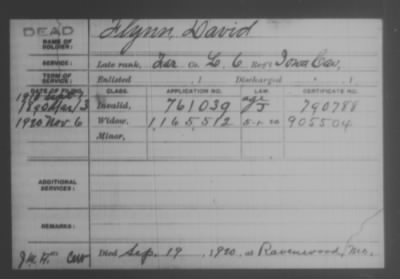 DEAD
NAME OF SOLDIER: Flynn, David
SERVICE: Late rank, Far Co. L, 6 Reg't Iowa Cav,
TERM OF SERVICE: Enlisted , 1 Discharged , 1
DATE OF FILING. CLASS. APPLICATION NO. LAW. CERTIFICATE NO.
1890 Mar 13 Invalid, 761039 age J 790788
1920 Nov 6 Widow, 1,165,512 5-1-20 905504
Minor,
ADDITIONAL SERVICES:
REMARKS:
Died Sep. 19, 1920, at Ravenwood, Mo.